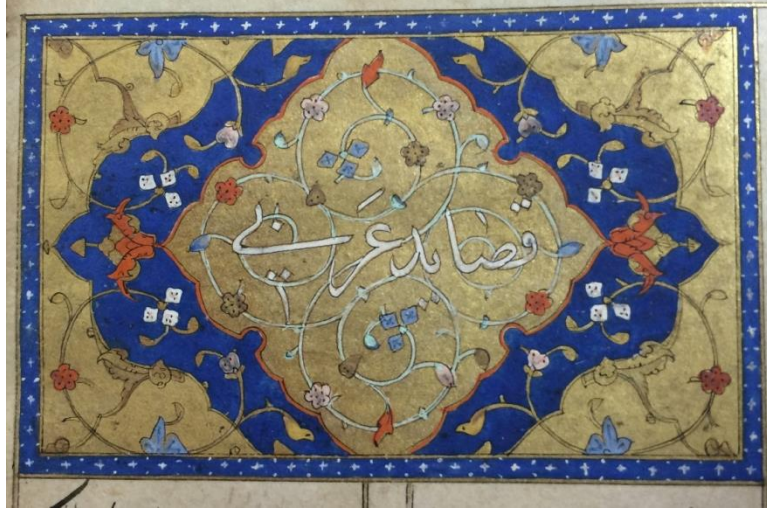 قصاید عربی